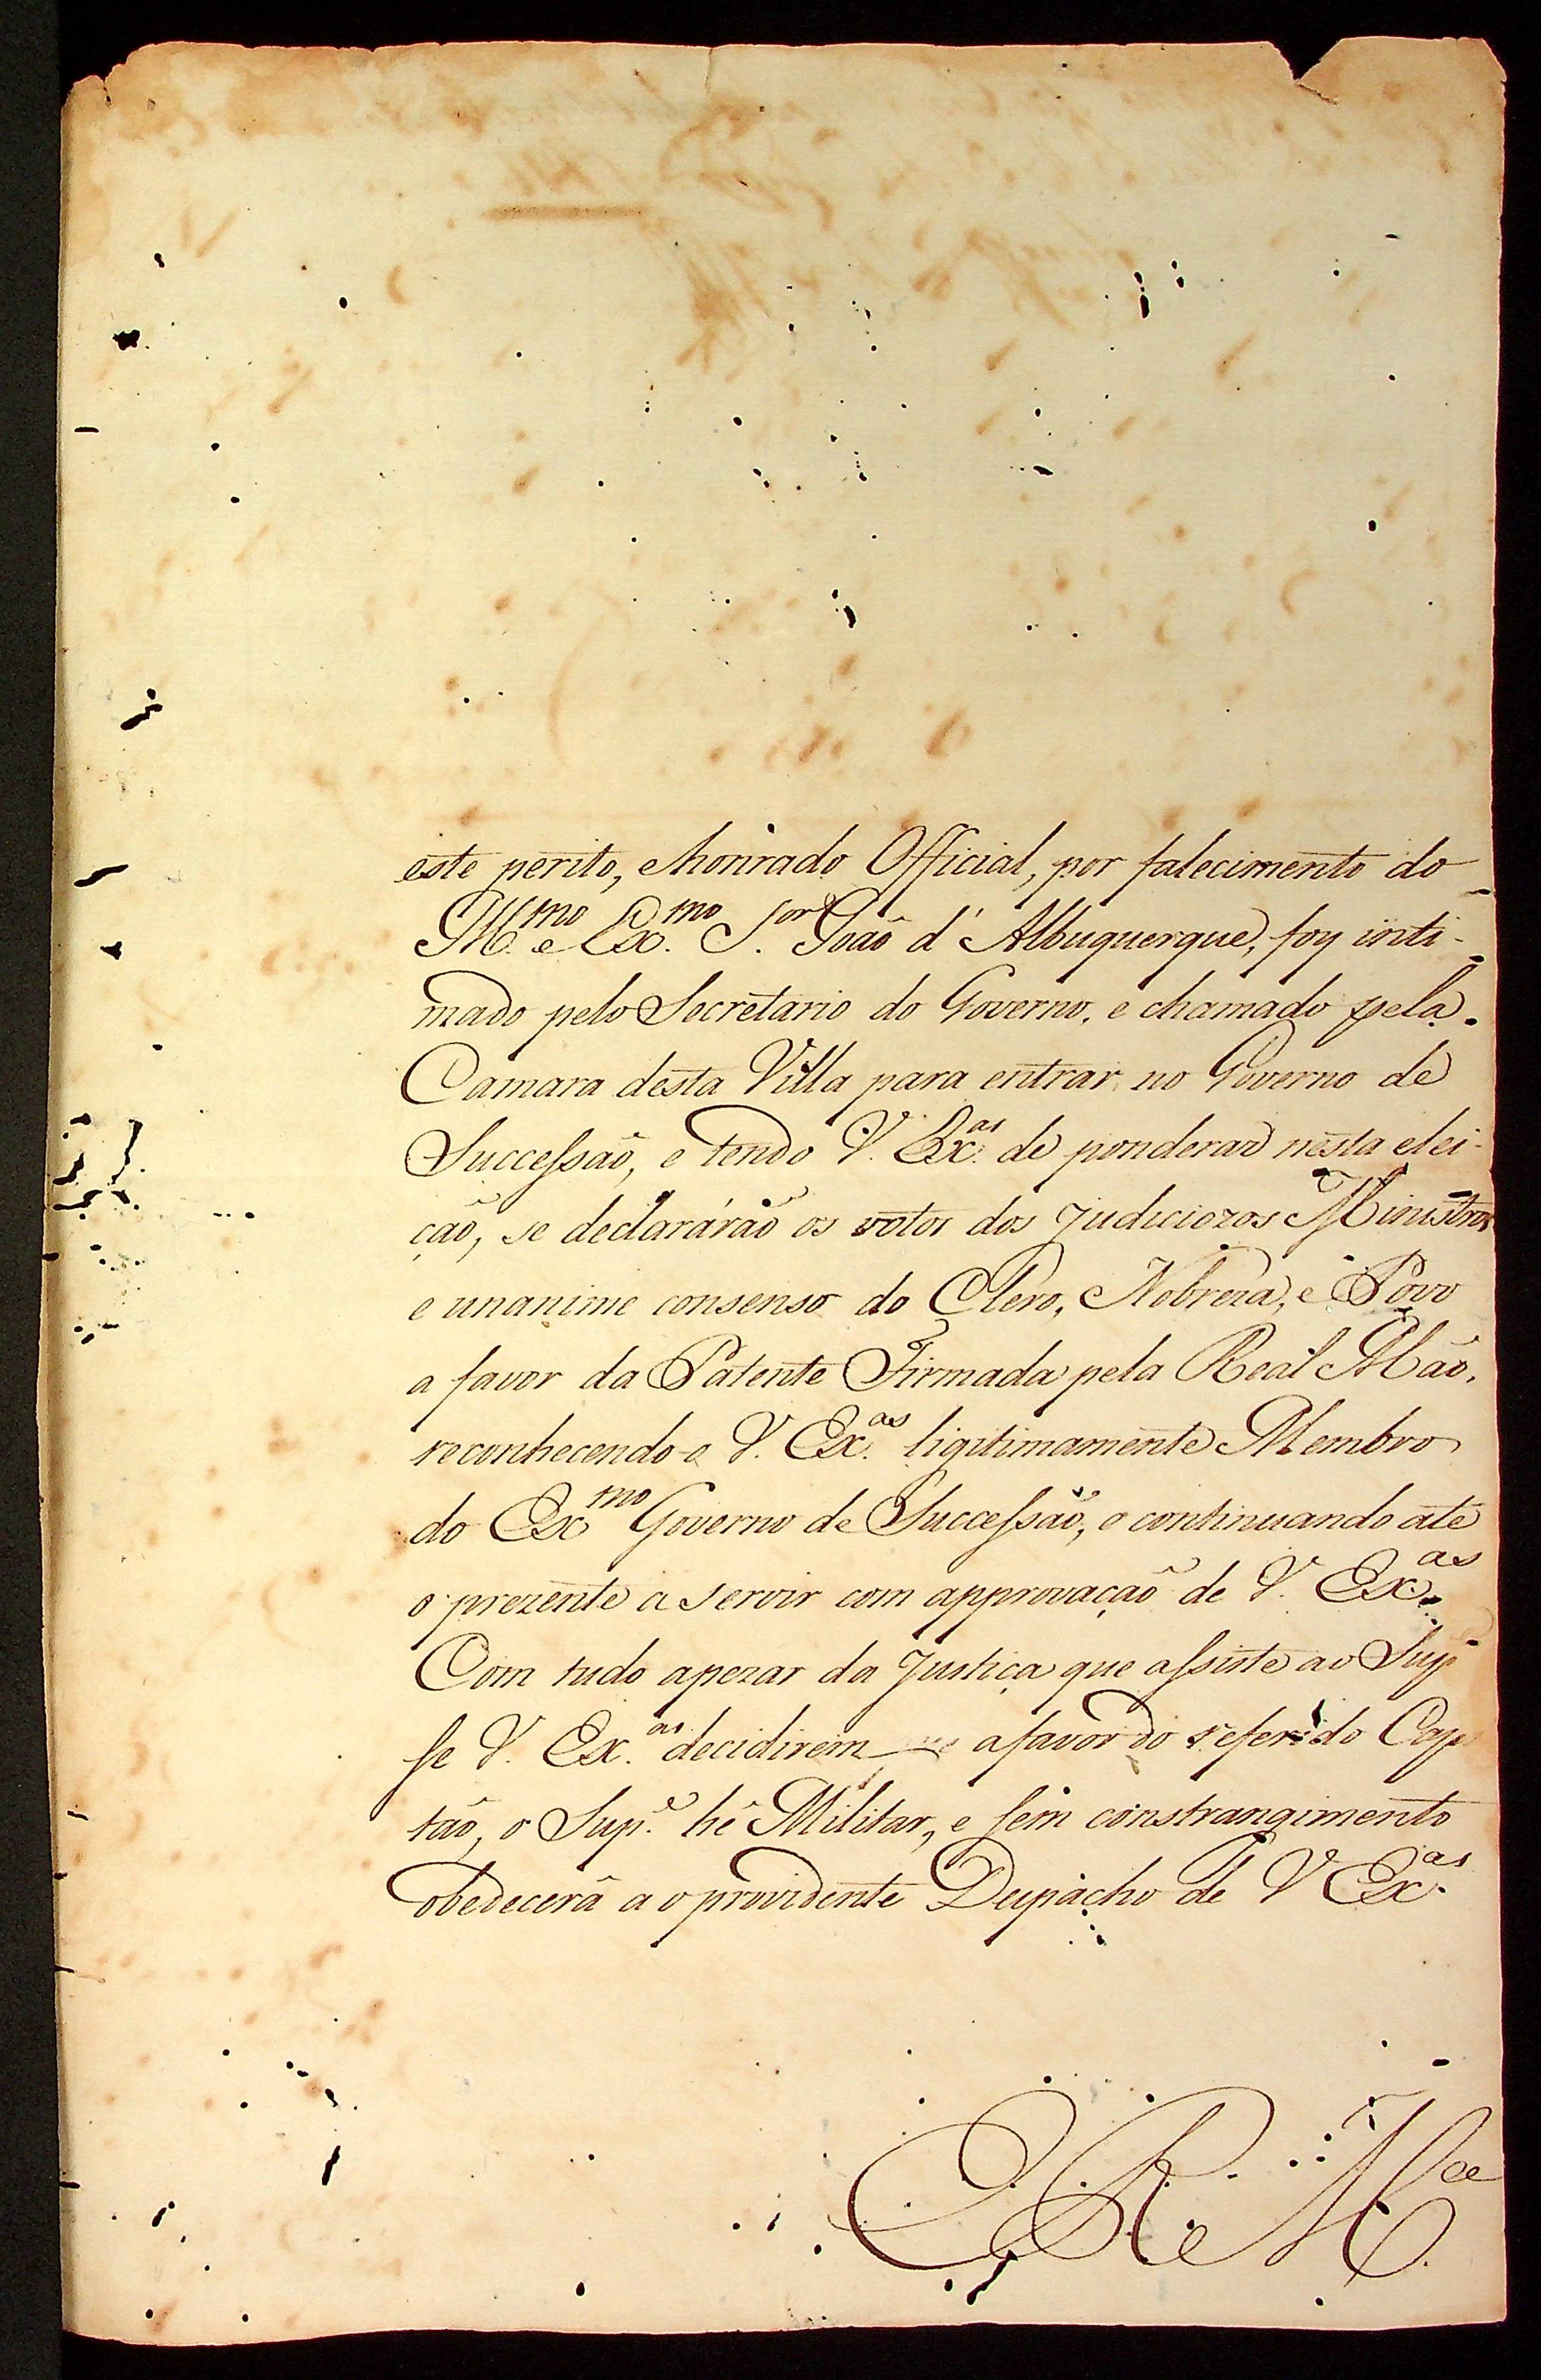 este perito, e honrado Official, por falecimento do
Ill.mo e Ex.mo S.or Joaõ d'Albuquerque, foy inti-
mado pelo Secretario do Governo, e chamado pela
Camara desta Villa para entrar no Governo de
Successaõ, e tendo V. Ex.as de ponderar nesta elei-
çaõ, se declararáraõ os votos dos judiciozos Ministros
e unanime consenso do Clero, Nobreza, e Povo
a favor da Patente Firmada pela Real Maõ,
reconhecendo-o V. Ex.as ligitimamente Membro
do Ex.mo Governo de Successaõ, e continuando até
o prezente a servir com approvaçaõ de V. Ex.as
Com tudo apezar da Justiça que assiste ao Sup
se V. Ex.as decidirem a favor do referido Cap
taõ, o Sup.e hé Militar, e sem constrangimento
obedecerá ao providente Despacho de V Ex.as
E R M.ce